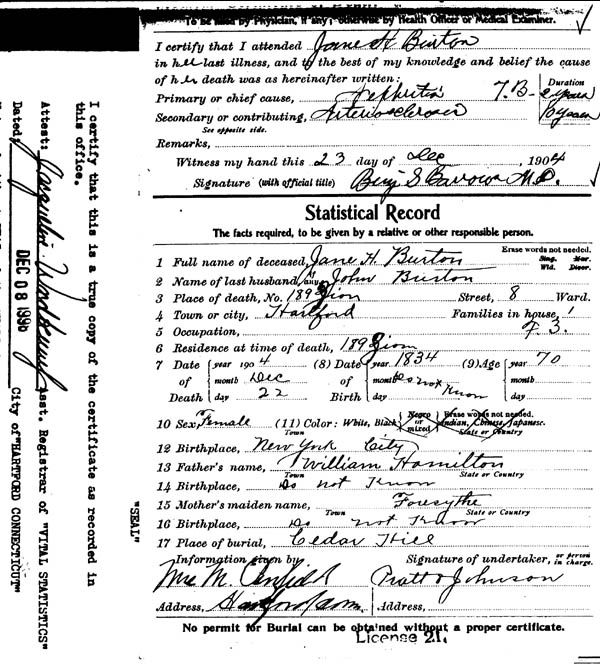 To be filled by Physician, if any; otherwise by Health Officer or Medical Examiner.
I certify that I attended Jane H Burton
in her last illness, and to the best of my knowledge and belief the cause
of her death was as hereinafter written:
Duration
Primary or chief cause, Nephritis 7.B- 2 years
Secondary or contributing, Arteriosclerosis years
See opposite side.
Remarks,
Witness my hand this 23 day of Dec , 1904
Signature (with official title) Benj S Barrows M.D.
Statistical Record
The facts required, to be given by a relative or other responsible person.
Erase words not needed.
1 Full name of deceased, Jane H. Burton Sing. Mar.
Wid. Divor.
2 Name of last husband, if any, John Burton
3 Place of death, No. 189 Zion Street, 8 Ward.
4 Town or city, Hartford Families in house, 1
5 Occupation, F 3.
6 Residence at time of death, 189 Zion
7 Date of Death year 1904 month Dec day 22 (8) Date of Birth year 1834 month Do not Know day (9) Age year 70 month day
10 Sex, Female (11) Color: White, Black, Negro or mixed, Indian, Chinese, Japanese.
Erase words not needed.
Town State or Country
12 Birthplace, New York City
13 Father's name, William Hamilton
Town State or Country
14 Birthplace, Do not Know
15 Mother's maiden name, Forsythe
Town State or Country
16 Birthplace, Do not Know
17 Place of burial, Cedar Hill
Information given by Signature of undertaker, or person in charge.
Mrs M. Pratt & Johnson
Address, Hartford Conn Address,
No permit for Burial can be obtained without a proper certificate.
License 21.
I certify that this is a true copy of the certificate as recorded in
this office.
"SEAL"
Attest: Asst. Registrar of "VITAL STATISTICS"
Dated, DEC 08 1986 City of "HARTFORD CONNECTICUT"